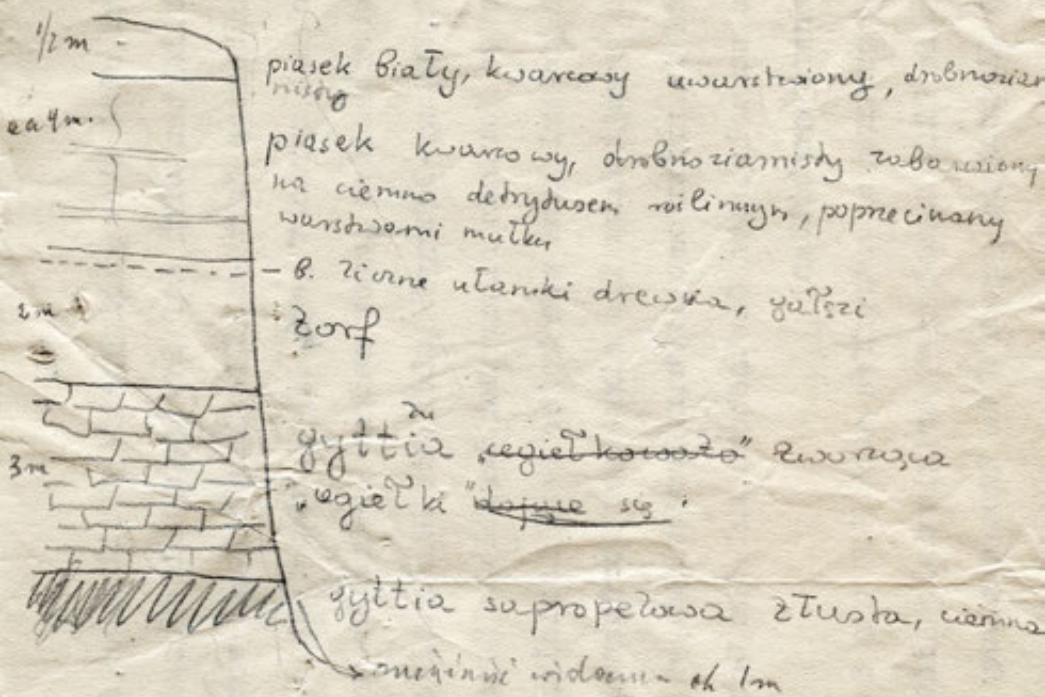 1/2 m
piasek biały, kwarcowy uwarstwiony, drobnoziar
nisty
ca 4 m.
piasek kwarcowy, drobnoziarnisty zabarwiony
na ciemno detrytusem roślinnym, poprzecinany
warstwami mułku
b. liczne ułamki drewna, gałęzi
2 m
torf
gyttia „cegiełkowata" tworząca
3 m
„cegiełki" dające się
gyttia sapropelowa tłusta, ciemna
widoczna ok 1 m